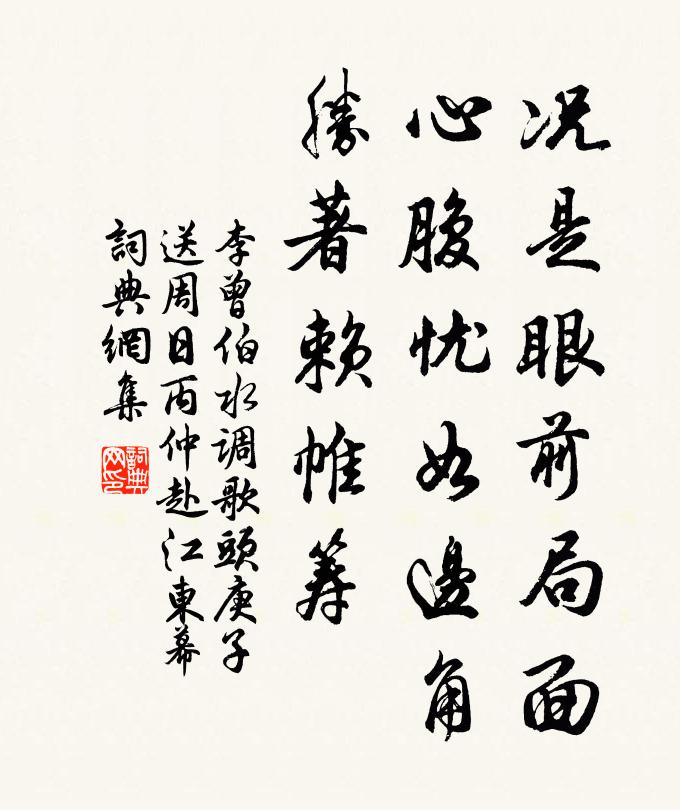 况是眼前局面
心腹忧如邊角
勝著賴帷筹
李曾伯水调歌頭庚子
送周日丙仲赴江東幕
詞典網集
詞典
网印